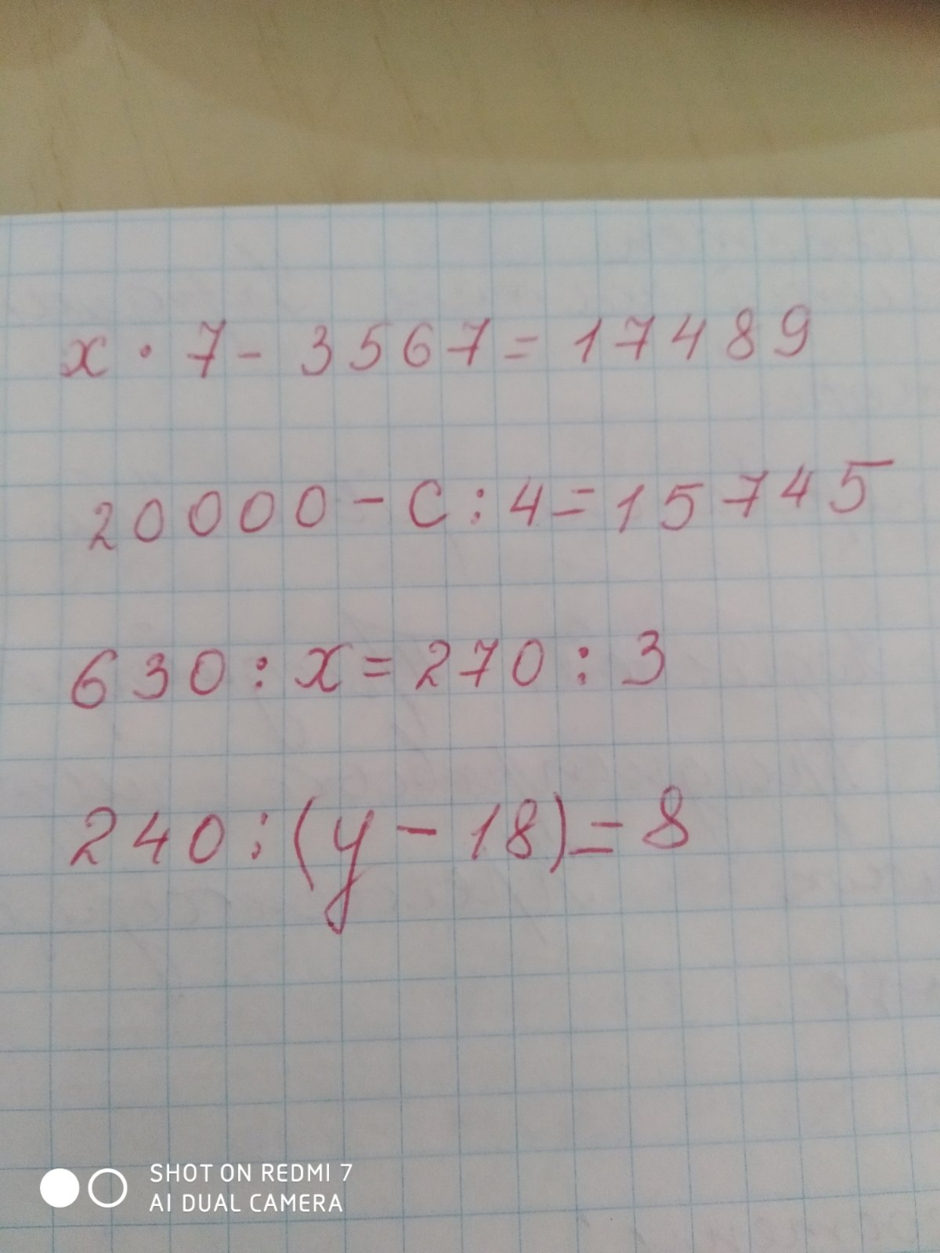 x · 7 - 3567 = 17489
20000 - C : 4 = 15745
630 : x = 270 : 3
240 : (y - 18) = 8
SHOT ON REDMI 7
AI DUAL CAMERA